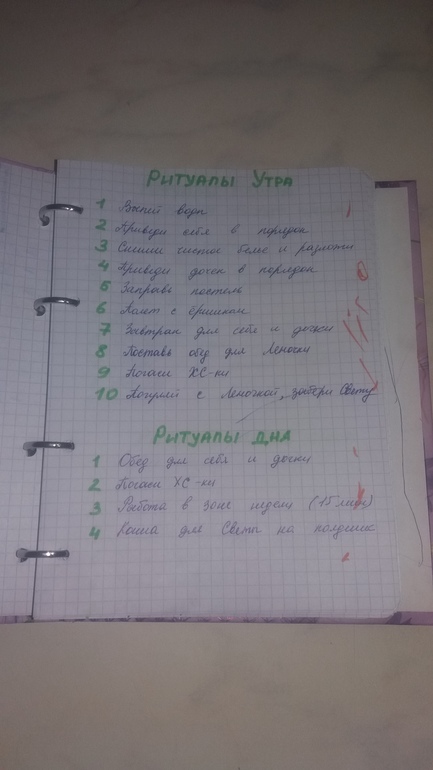 Ритуалы Утра
1 Выпей воды
2 Приведи себя в порядок
3 Сними чистое белье и разложи
4 Приведи дочек в порядок
5 Заправь постель
6 с ёршиком
7 Завтрак для себя и дочки
8 Поставь обед для Леночки
9 Погаси ХС-ки
10 Погуляй с Леночкой, забери Свету
Ритуалы дна
1 Обед для себя и дочки
2 Погаси ХС-ки
3 Работа в зоне недели (15 мин)
4 для Светы на полдник